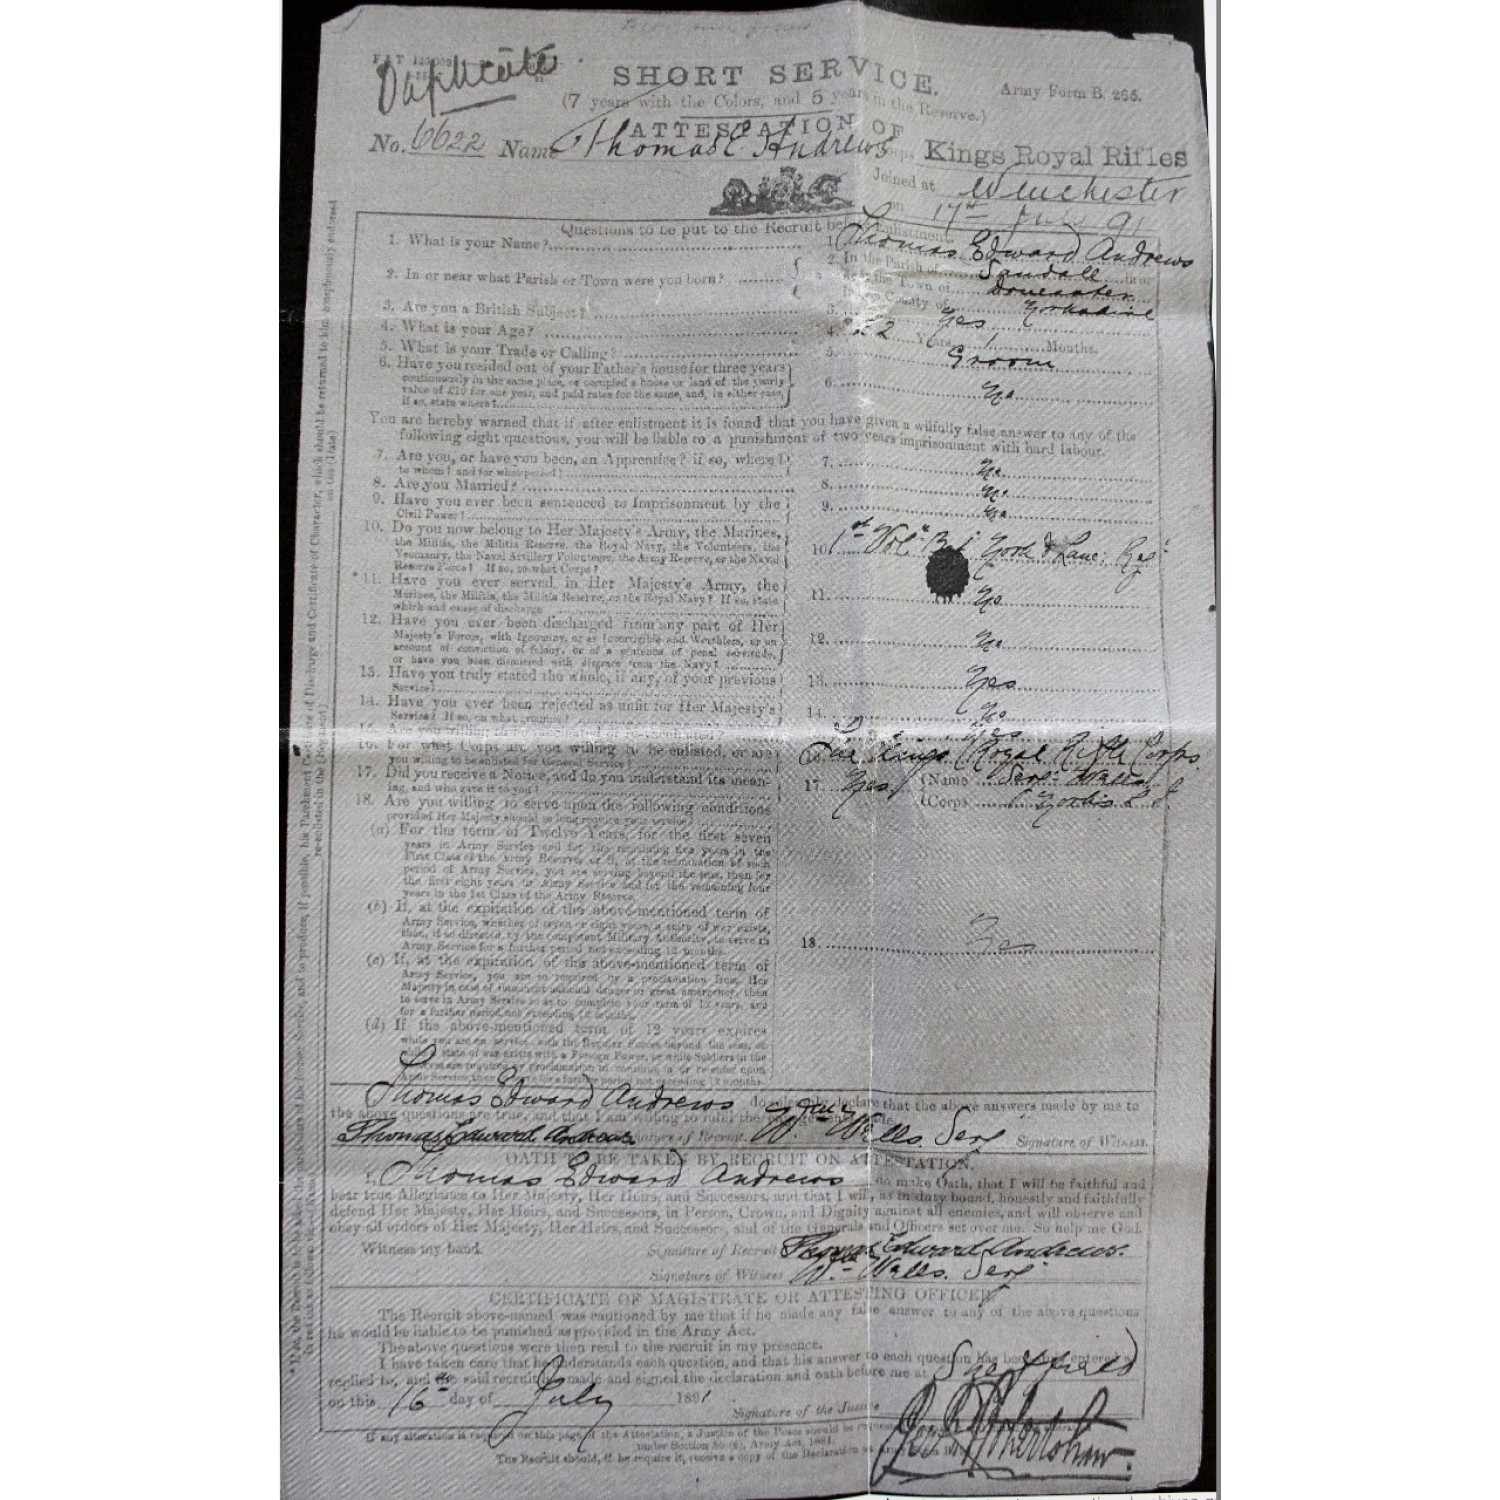 Duplicate
SHORT SERVICE.
Army Form B. 265.
(7 years with the Colors, and 5 years in the Reserve.)
ATTESTATION OF
No. 6622 Name Thomas E Andrews Corps Kings Royal Rifles
Joined at Winchester
on 17th July 91
Questions to be put to the Recruit before Enlistment.
1. What is your Name? 1. Thomas Edward Andrews
2. In or near what Parish or Town were you born? 2. In the Parish of Sandall in or
near the Town of Doncaster
in the County of Yorkshire
3. Are you a British Subject? 3. Yes
4. What is your Age? 4. 22 Years 1 Months.
5. What is your Trade or Calling? 5. Groom
6. Have you resided out of your Father's house for three years
continuously in the same place, or occupied a house or land of the yearly
value of £10 for one year, and paid rates for the same, and, in either case, 6. No
if so, state where?
You are hereby warned that if after enlistment it is found that you have given a wilfully false answer to any of the
following eight questions, you will be liable to a punishment of two years imprisonment with hard labour.
7. Are you, or have you been, an Apprentice? if so, where? 7. No
to whom? and for what period?
8. Are you Married? 8. No
9. Have you ever been sentenced to Imprisonment by the 9. No
Civil Power?
10. Do you now belong to Her Majesty's Army, the Marines, 10. 1st Vol. Bn York & Lanc: Regt
the Militia, the Militia Reserve, the Royal Navy, the Volunteers, the
Yeomanry, the Naval Artillery Volunteers, the Army Reserve, or the Naval
Reserve Force? If so, to what Corps?
*11. Have you ever served in Her Majesty's Army, the 11. No
Marines, the Militia, the Militia Reserve, or the Royal Navy? If so, state
which and cause of discharge
12. Have you ever been discharged from any part of Her 12. No
Majesty's Forces, with Ignominy, or as Incorrigible and Worthless, or on
account of conviction of felony, or of a sentence of penal servitude,
or have you been dismissed with disgrace from the Navy?
13. Have you truly stated the whole, if any, of your previous 13. Yes
Service?
14. Have you ever been rejected as unfit for Her Majesty's 14. No
Service? If so, on what grounds?
15. Are you willing to be vaccinated or re-vaccinated? Yes
16. For what Corps are you willing to be enlisted, or are 16. The Kings Royal Rifle Corps.
you willing to be enlisted for General Service?
17. Did you receive a Notice, and do you understand its mean- 17. Yes (Name Sergt Walls
ing, and who gave it to you? (Corps
18. Are you willing to serve upon the following conditions
provided Her Majesty should so long require your service?
(a) For the term of Twelve Years, for the first seven
years in Army Service and for the remaining five years in the
First Class of the Army Reserve, or if, at the termination of such
period of Army Service, you are serving beyond the seas, then for
the first eight years in Army Service and for the remaining four
years in the 1st Class of the Army Reserve.
(b) If, at the expiration of the above-mentioned term of
Army Service, whether of seven or eight years, a state of war exists,
then, if so directed by the competent Military Authority, to serve in
Army Service for a further period not exceeding 12 months.
18. Yes
(c) If, at the expiration of the above-mentioned term of
Army Service, you are so required by a proclamation from Her
Majesty in case of imminent national danger or great emergency, then
to serve in Army Service so as to complete your term of 12 years, and
for a further period not exceeding 12 months.
(d) If the above-mentioned term of 12 years expires
while you are on service with the Regular Forces beyond the seas, or
while a state of war exists with a Foreign Power, or while Soldiers in the
Reserve are required by proclamation to continue in or re-enter upon
Army Service, then to serve for a further period not exceeding 12 months.
Thomas Edward Andrews do solemnly declare that the above answers made by me to
the above questions are true, and that I am willing to fulfil the engagements made.
Thomas Edward Andrews Signature of Recruit. Wm Walls. Sergt Signature of Witness.
OATH TO BE TAKEN BY RECRUIT ON ATTESTATION.
I, Thomas Edward Andrews do make Oath, that I will be faithful and
bear true Allegiance to Her Majesty, Her Heirs, and Successors, and that I will, as in duty bound, honestly and faithfully
defend Her Majesty, Her Heirs, and Successors, in Person, Crown, and Dignity against all enemies, and will observe and
obey all orders of Her Majesty, Her Heirs, and Successors, and of the Generals and Officers set over me. So help me God.
Witness my hand. Signature of Recruit Thomas Edward Andrews.
Signature of Witness Wm Walls. Sergt
CERTIFICATE OF MAGISTRATE OR ATTESTING OFFICER.
The Recruit above-named was cautioned by me that if he made any false answer to any of the above questions
he would be liable to be punished as provided in the Army Act.
The above questions were then read to the recruit in my presence.
I have taken care that he understands each question, and that his answer to each question has been duly entered as
replied to, and the said recruit has made and signed the declaration and oath before me at Sheffield
on this 16th day of July 1891
Signature of the Justice
If any alteration is required on this page of the Attestation, a Justice of the Peace should be requested
under Section 80 (6), Army Act, 1881.
The Recruit should, if he require it, receive a copy of the Declaration